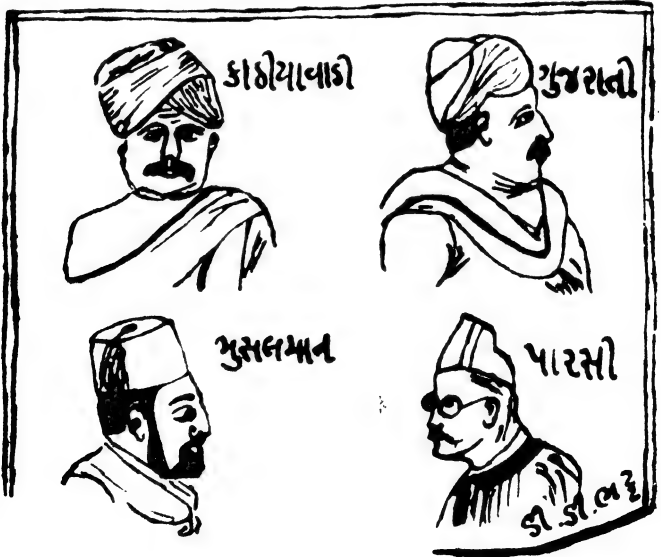 કાઠીયાવાડી
ગુજરાતી
મુસલમાન
પારસી
ડી. ડી. ભટ્ટ